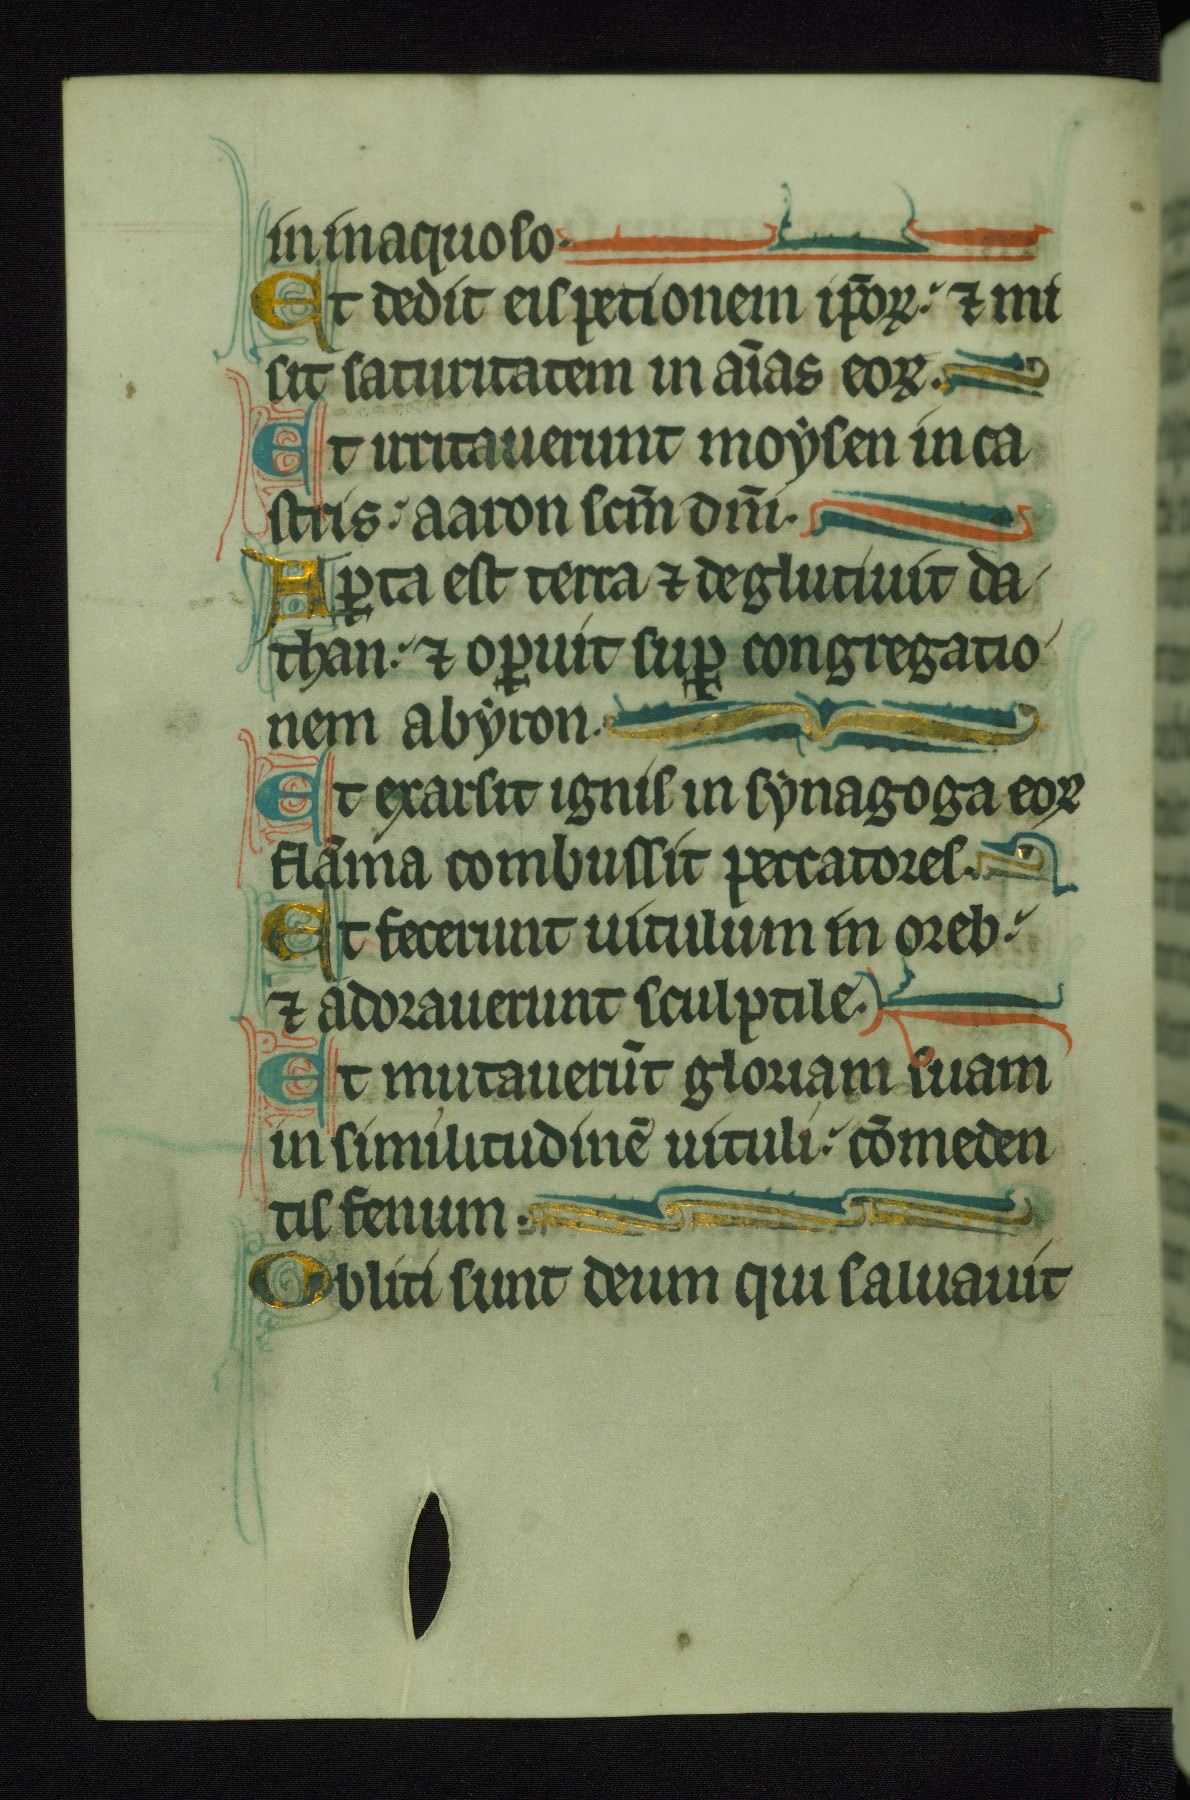 in inaquoso.
Et dedit eis petionem ip̄oꝝ: ⁊ mi
sit saturitatem in aīas eoꝝ.
Et irritauerunt moẏsen in ca
stris: aaron scm̄ dn̄i.
Aꝑta est terra ⁊ deglutiuit da
than: ⁊ oꝑuit suꝑ congregatio
nem abẏron.
Et exarsit ignis in sẏnagoga eoꝝ
flāma combussit peccatores.
Et fecerunt uitulum in oreb:
⁊ adorauerunt sculptile.
Et mutauerūt gloriam suam
in similitudinē uituli: cōmeden
tis fenum.
Obliti sunt deum qui saluauit